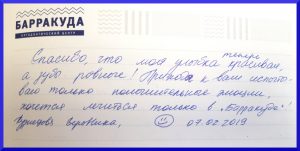 БАРРАКУДА
СТОМАТОЛОГИЧЕСКИЙ ЦЕНТР
теперь
Спасибо, что моя улыбка красивая,
а зубы ровные! Приходя к вам испыты-
ваю только положительные эмоции,
хочется лечиться только в "Барракуде"!
Вероника,
07.02.2019